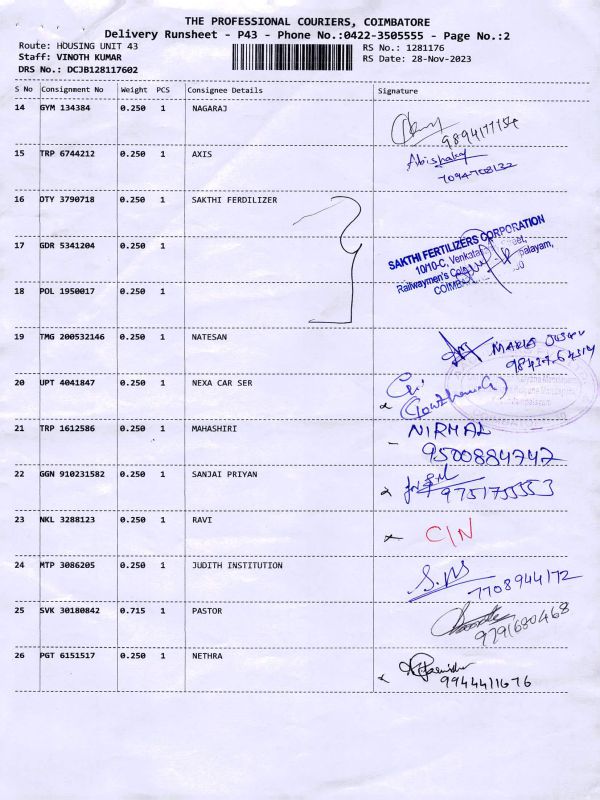 THE PROFESSIONAL COURIERS, COIMBATORE
Delivery Runsheet - P43 - Phone No.:0422-3505555 - Page No.:2
Route: HOUSING UNIT 43
RS No.: 1281176
Staff: VINOTH KUMAR
RS Date: 28-Nov-2023
DRS No.: DCJB128117602
S No Consignment No Weight PCS Consignee Details Signature
14 GYM 134384 0.250 1 NAGARAJ
9894177154
15 TRP 6744212 0.250 1 AXIS
7094708132
16 OTY 3790718 0.250 1 SAKTHI FERDILIZER
SAKTHI FERTILIZERS CORPORATION
17 GDR 5341204 0.250 1
10/10-C, Venkata
Railwaymen's
18 POL 1950017 0.250 1
19 TMG 200532146 0.250 1 NATESAN
MARIA
20 UPT 4041847 0.250 1 NEXA CAR SER
21 TRP 1612586 0.250 1 MAHASHIRI NIRMAL
9500884747
22 GGN 910231582 0.250 1 SANJAI PRIYAN
9751755553
23 NKL 3288123 0.250 1 RAVI C/N
24 MTP 3086205 0.250 1 JUDITH INSTITUTION
7708944172
25 SVK 30180842 0.715 1 PASTOR
9791680468
26 PGT 6151517 0.250 1 NETHRA
9944411676